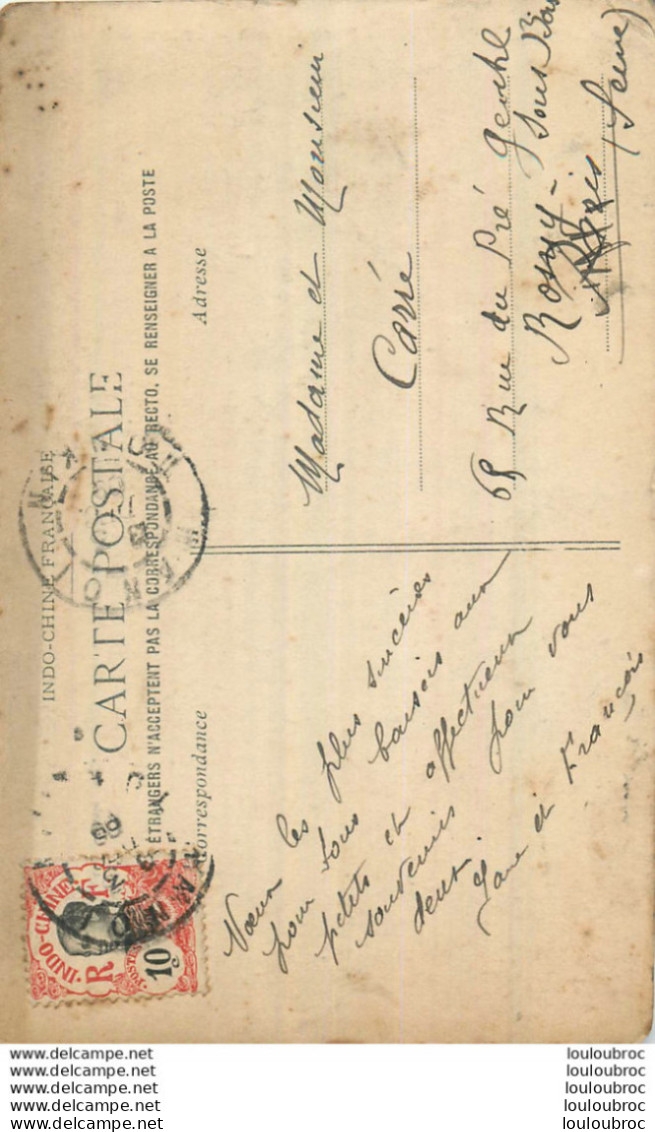 INDO-CHINE FRANÇAISE
CARTE POSTALE
ÉTRANGERS N'ACCEPTENT PAS LA CORRESPONDANCE AU RECTO, SE RENSEIGNER A LA POSTE
Correspondance
Adresse
Vœux les plus sincères
pour tous baisers aux
petits et affectueux
souvenirs pour vous
deux
et François
Madame et Monsieur
Carré
Rue du Pré Gentil
Rosny-Sous Bois
(Seine)
INDO-CHINE
R F
POSTES
10 c
www.delcampe.net
www.delcampe.net
www.delcampe.net
www.delcampe.net
www.delcampe.net
louloubroc
louloubroc
louloubroc
louloubroc
louloubroc